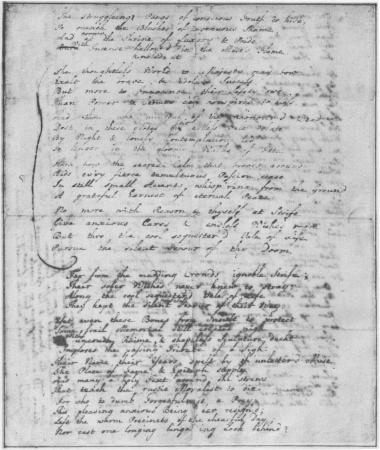 The struggling Pangs of conscious Truth to hide,
To quench the Blushes of ingenuous Shame,
And at the Shrine of Luxury & Pride
With Incense hallowd in the Muse's Flame
kindled at
The thoughtless World to Majesty may bow
Exalt the brave, & idolize Success
But more to Innocence their Safety owe
Than Power & Genius e'er conspired to bless
And thou, who mindful of the unhonour'd Dead
Dost in these thy artless Tale relate
By Night & lonely Contemplation led
To linger in the gloomy Walks of Fate
Hark how the sacred Calm, that broods around
Bids ev'ry fierce tumultuous Passion cease
In still small Accents whisp'ring from the Ground
A grateful Earnest of eternal Peace
No more with Reason & thyself at Strife
Give anxious Cares & endless Wishes room
But thro' the cool sequester'd Vale of Life
Pursue the silent Tenour of thy Doom.
Far from the madding Crowd's ignoble Strife;
Their sober Wishes never knew to stray:
Along the cool sequester'd Vale of Life
They kept the silent Tenour of their Way.
Yet even these Bones from Insult to protect
Some frail Memorial still erected nigh
With uncouth Rhime, & shapeless Sculpture deckt
Implores the passing Tribute of a Sigh.
Their Name, their Years, spelt by th' unletter'd Muse
The Place of Fame, & Epitaph supply
And many a holy Text around she strews
That teach the rustic Moralist to die.
For who to dumb Forgetfulness, a Prey,
This pleasing anxious Being e'er resign'd;
Left the warm Precincts of the chearful Day,
Nor cast one longing lingring Look behind?